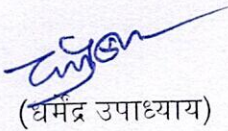 (धर्मेंद्र उपाध्याय)